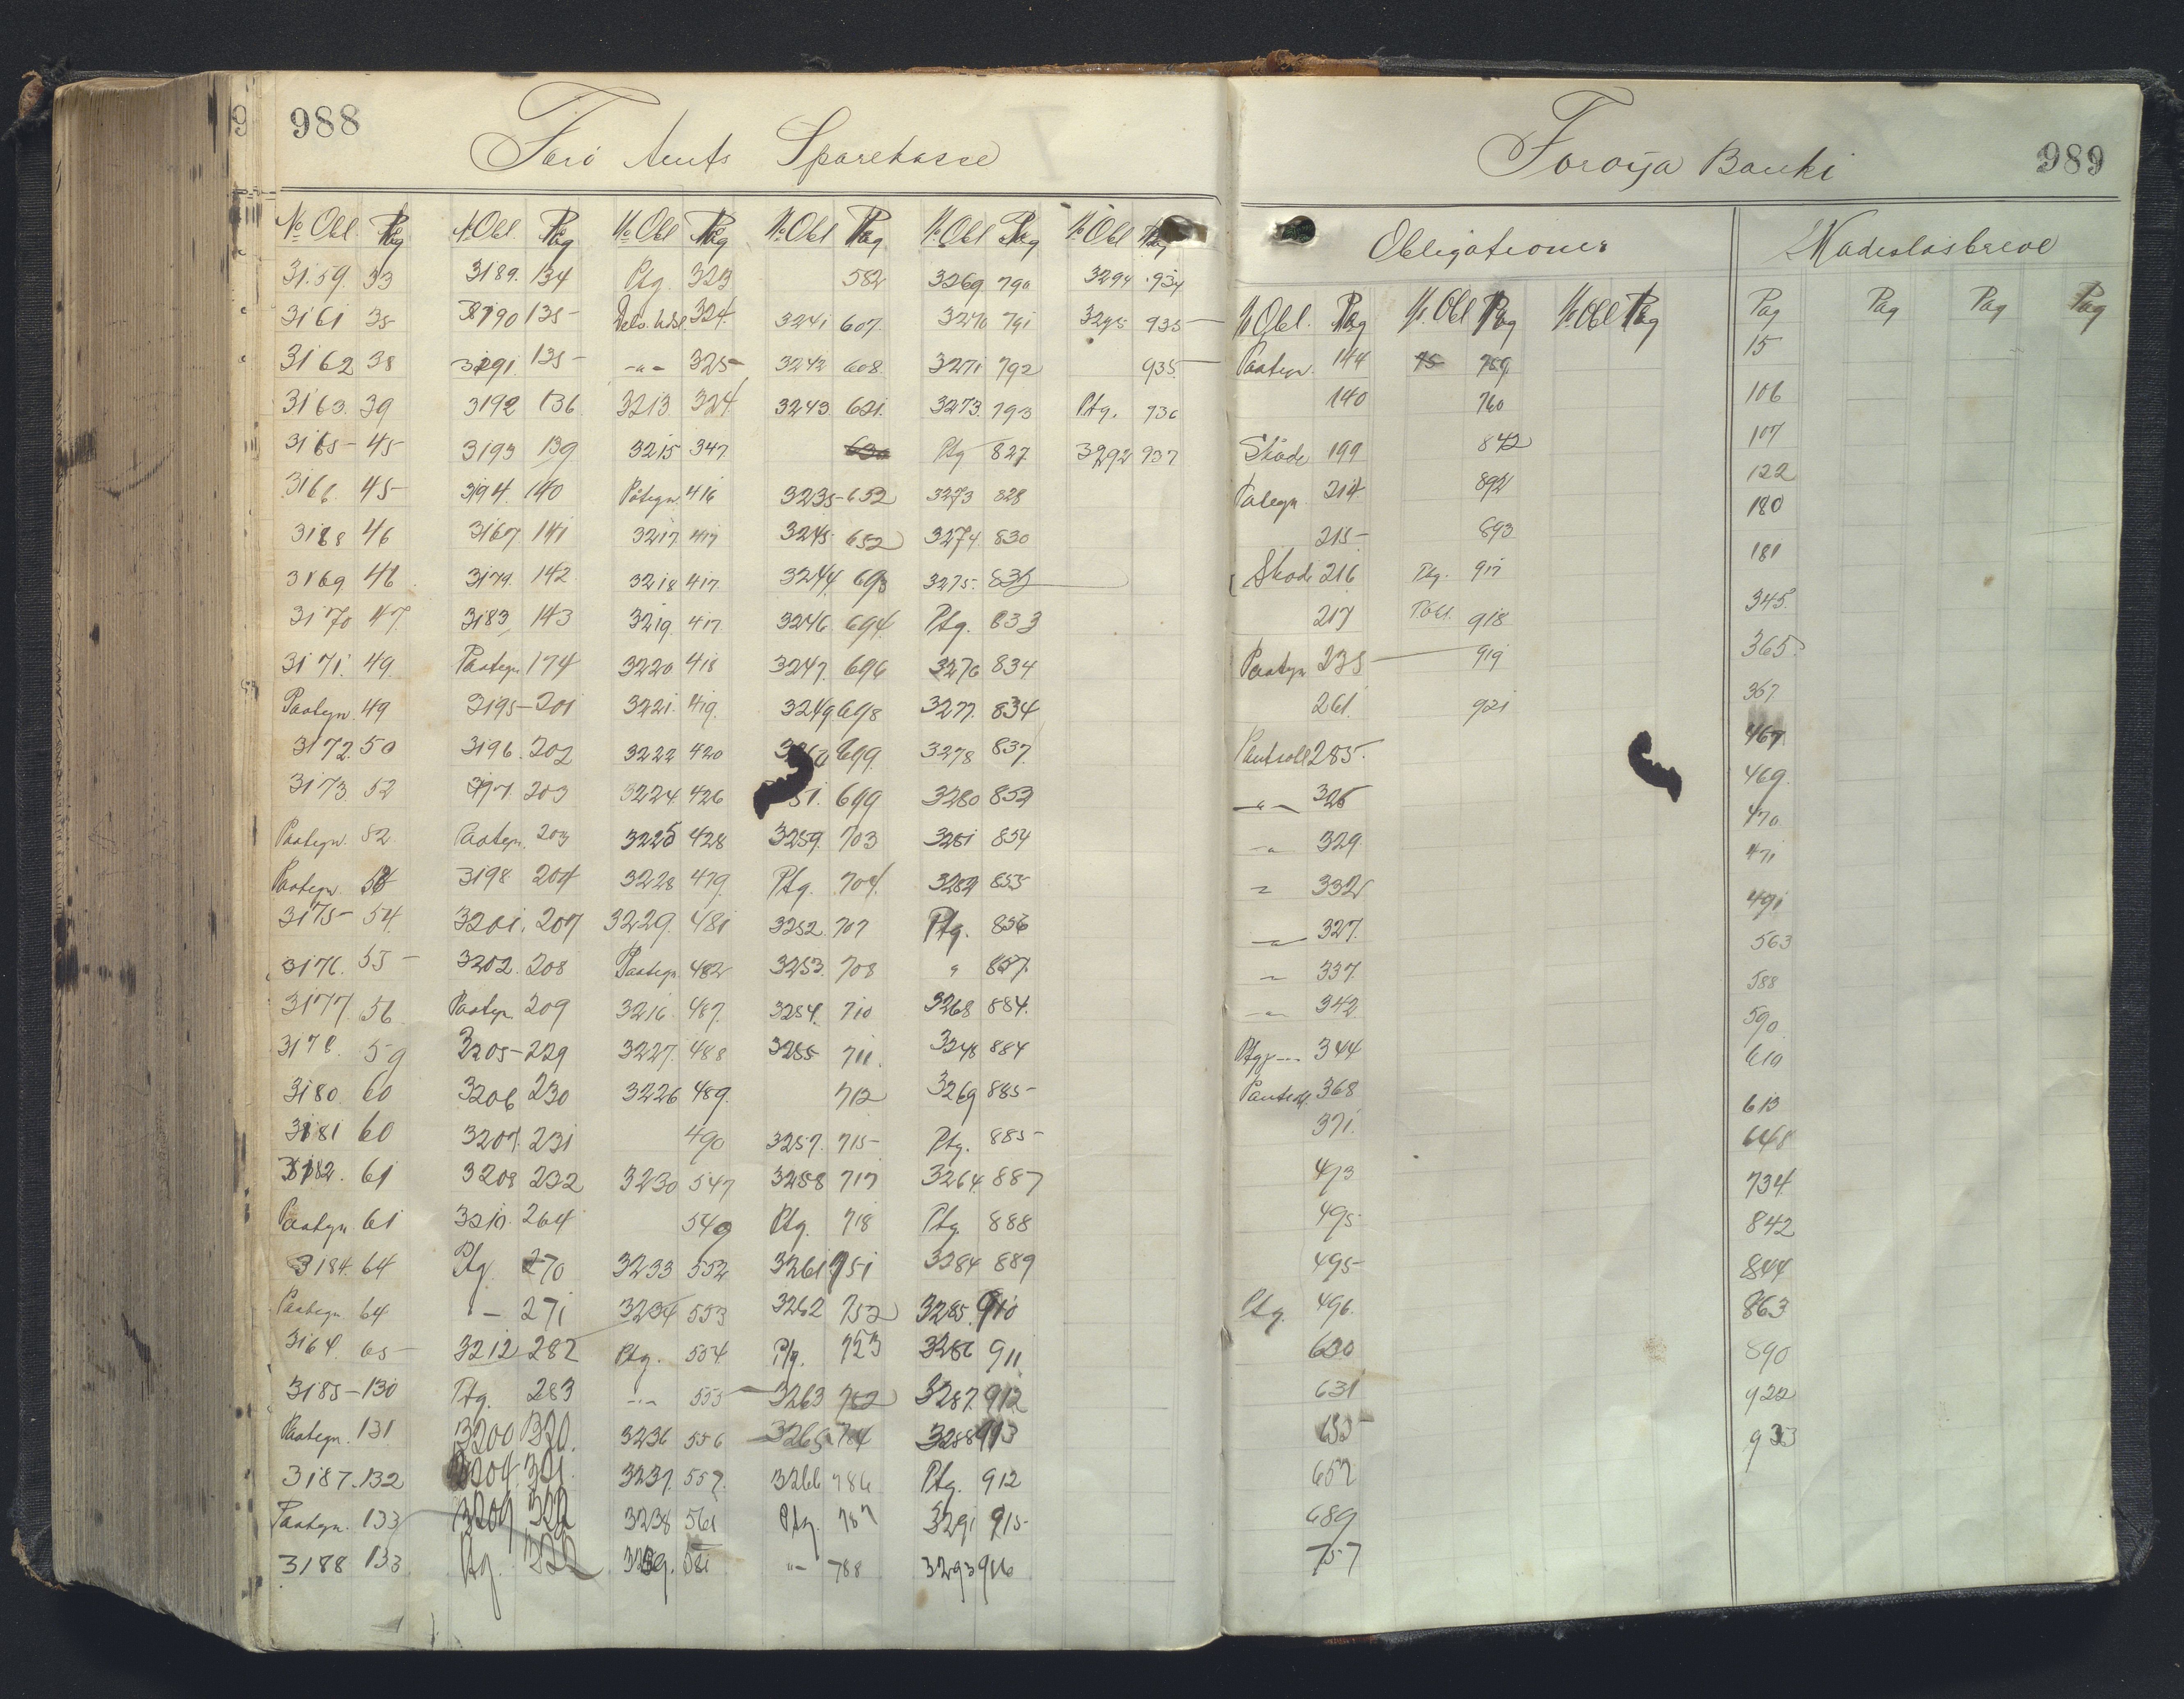 988
Færø Amts Sparekasse
No Obl. Pag No Obl. Pag No Obl Pag No Obl Pag No Obl Pag No Obl Pag
3159. 33 3189. 134 Ptg. 323 582 3269 790 3294 934
3161 35 3190 135 324 3241 607 3270 791 3295 935
3162 38 3191 135 -"- 325 3242 608 3271 792 935
3163. 39 3192 136 3213 324 3243 621. 3273. 793 Ptg. 736
3165 45 3193 139 3215 347 630 Ptg 827 3292 937
3166. 45 3194. 140 Påtegn. 416 3235 652 3273 828
3168 46 3167. 141 3217 417 3245 652 3274 830
3169. 46 3179. 142 3218 417. 3244. 693 3275.
3170 47 3183 143 3219. 417 3246 694 Ptg. 833
3171. 49. Paategn 174 3220 418 3247. 696 3276 834
Paategn. 49 3195 201 3221. 419. 3249 698 3277. 834
3172. 50 3196. 202 3222 420 699 3278 837.
3173. 52 3197. 203 3224 426 51. 699 3280 853
Paategn. 52 Paategn. 203 3225 428 3259. 703 3281 854
Paategn. 3198 204 3228 479. Ptg. 704. 3282 855
3175 54 3201. 207 3229. 481 3252. 707 Ptg. 856
3176. 55 3202. 208 Paategn. 482 3253. 708 " 857.
3177. 56 Paategn. 209 3216. 487. 3254. 710 3268 884.
3178. 59 3205 229 3227. 488 3255 711. 3248 884
3180. 60 3206 230 3226 489. 712 3269 885
3181 60 3207. 231 490 3257. 715 Ptg. 885
3182. 61 3208 232 3230 547 3258 717 3264. 887
Paategn. 61 3210. 264 549 Ptg. 718 Ptg. 888
3184. 64 Ptg. 270 3233 552 3261 751 3284 889
Paategn 64 " - 271 3234 553 3262 752 3285. 910
3164. 65 3212 282 Ptg. 554. Ptg. 753 3286 911
3185 130 Ptg. 283 -"- 555 3263 782 3287. 912
Paategn. 131 3200 320. 3236 556 3265 784 3288 913
3187. 132 3204. 321. 3237. 557. 3266 786 Ptg. 912
Paategn. 133 3209 322 3238 561 Ptg. 787 3291 915
3188 133 Ptg. 322 3239. 581 "- 788 3293 916
Føroya Banki
989
Obligationer Skadesløsbreve
No Obl. Pag No Obl Pag No Obl Pag Pag Pag Pag Pag
Paategn. 144 75 759 15
140 760 106
Skade 199 842 107
Paategn 214 892 122
215 893 180
Skade 216 Ptg. 917 181
217 918 345.
Paategn 235 919 365.
261. 921 367
Pantobl 285. 467
-"- 326 469.
-"- 329 470
" 332 471
-"- 327. 491
" 337. 563
-"- 342 588
Ptg. 344 590
Pantobl. 368 610
371. 613
473 648
495 734
495 842
Ptg. 496. 844
630 863
631 890
653 922
657 933
689
757